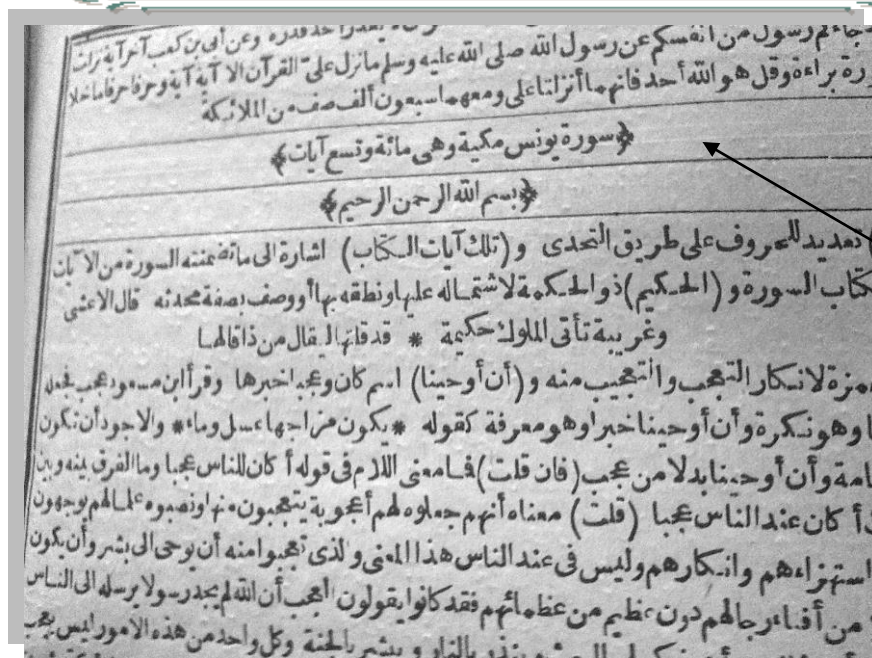 جاءكم رسول من أنفسكم عن رسول الله صلى الله عليه وسلم مانزل على القرآن الا آية آية وحرفا حرفا ماخلا
ورة براءة وقل هو الله أحد فانهما أنزلتا على ومعهما سبعون ألف صف من الملائكة
﴿سورة يونس مكية وهى مائة وتسع آيات﴾
﴿بسم الله الرحمن الرحيم﴾
) تعديد للحروف على طريق التحدى و (تلك آيات الكتاب) اشارة الى ماتضمنته السورة من الآيات
كتاب السورة و (الحكيم) ذو الحكمة لاشتماله عليها ونطقه بها أو وصف بصفة محدثه قال الاعشى
وغريبة تأتى الملوك حكيمة * قد قلتها ليقال من ذا قالها
همزة لانكار التعجب والتعجيب منه و (أن أوحينا) اسم كان وعجبا خبرها وقرأ ابن مسعود عجب فجعله
ا وهو نكرة وأن أوحينا خبرا وهو معرفة كقوله * يكون مزاجها عسل وماء * والاجود أن تكون
امة وأن أوحينا بدلا من عجب (فان قلت) فما معنى اللام فى قوله أكان للناس عجبا وما الفرق بينه وبين
ك أكان عند الناس عجبا (قلت) معناه أنهم جعلوه لهم أعجوبة يتعجبون منها ونصبوه علما لهم يوجهون
استهزاءهم وانكارهم وليس فى عند الناس هذا المعنى والذى تعجبوا منه أن يوحى الى بشر وأن يكون
من أفناء رجالهم دون عظيم من عظمائهم فقد كانوا يقولون العجب أن الله لم يجد رسولا يرسله الى الناس
بالنار ويبشر بالجنة وكل واحد من هذه الامور ليس بعجب